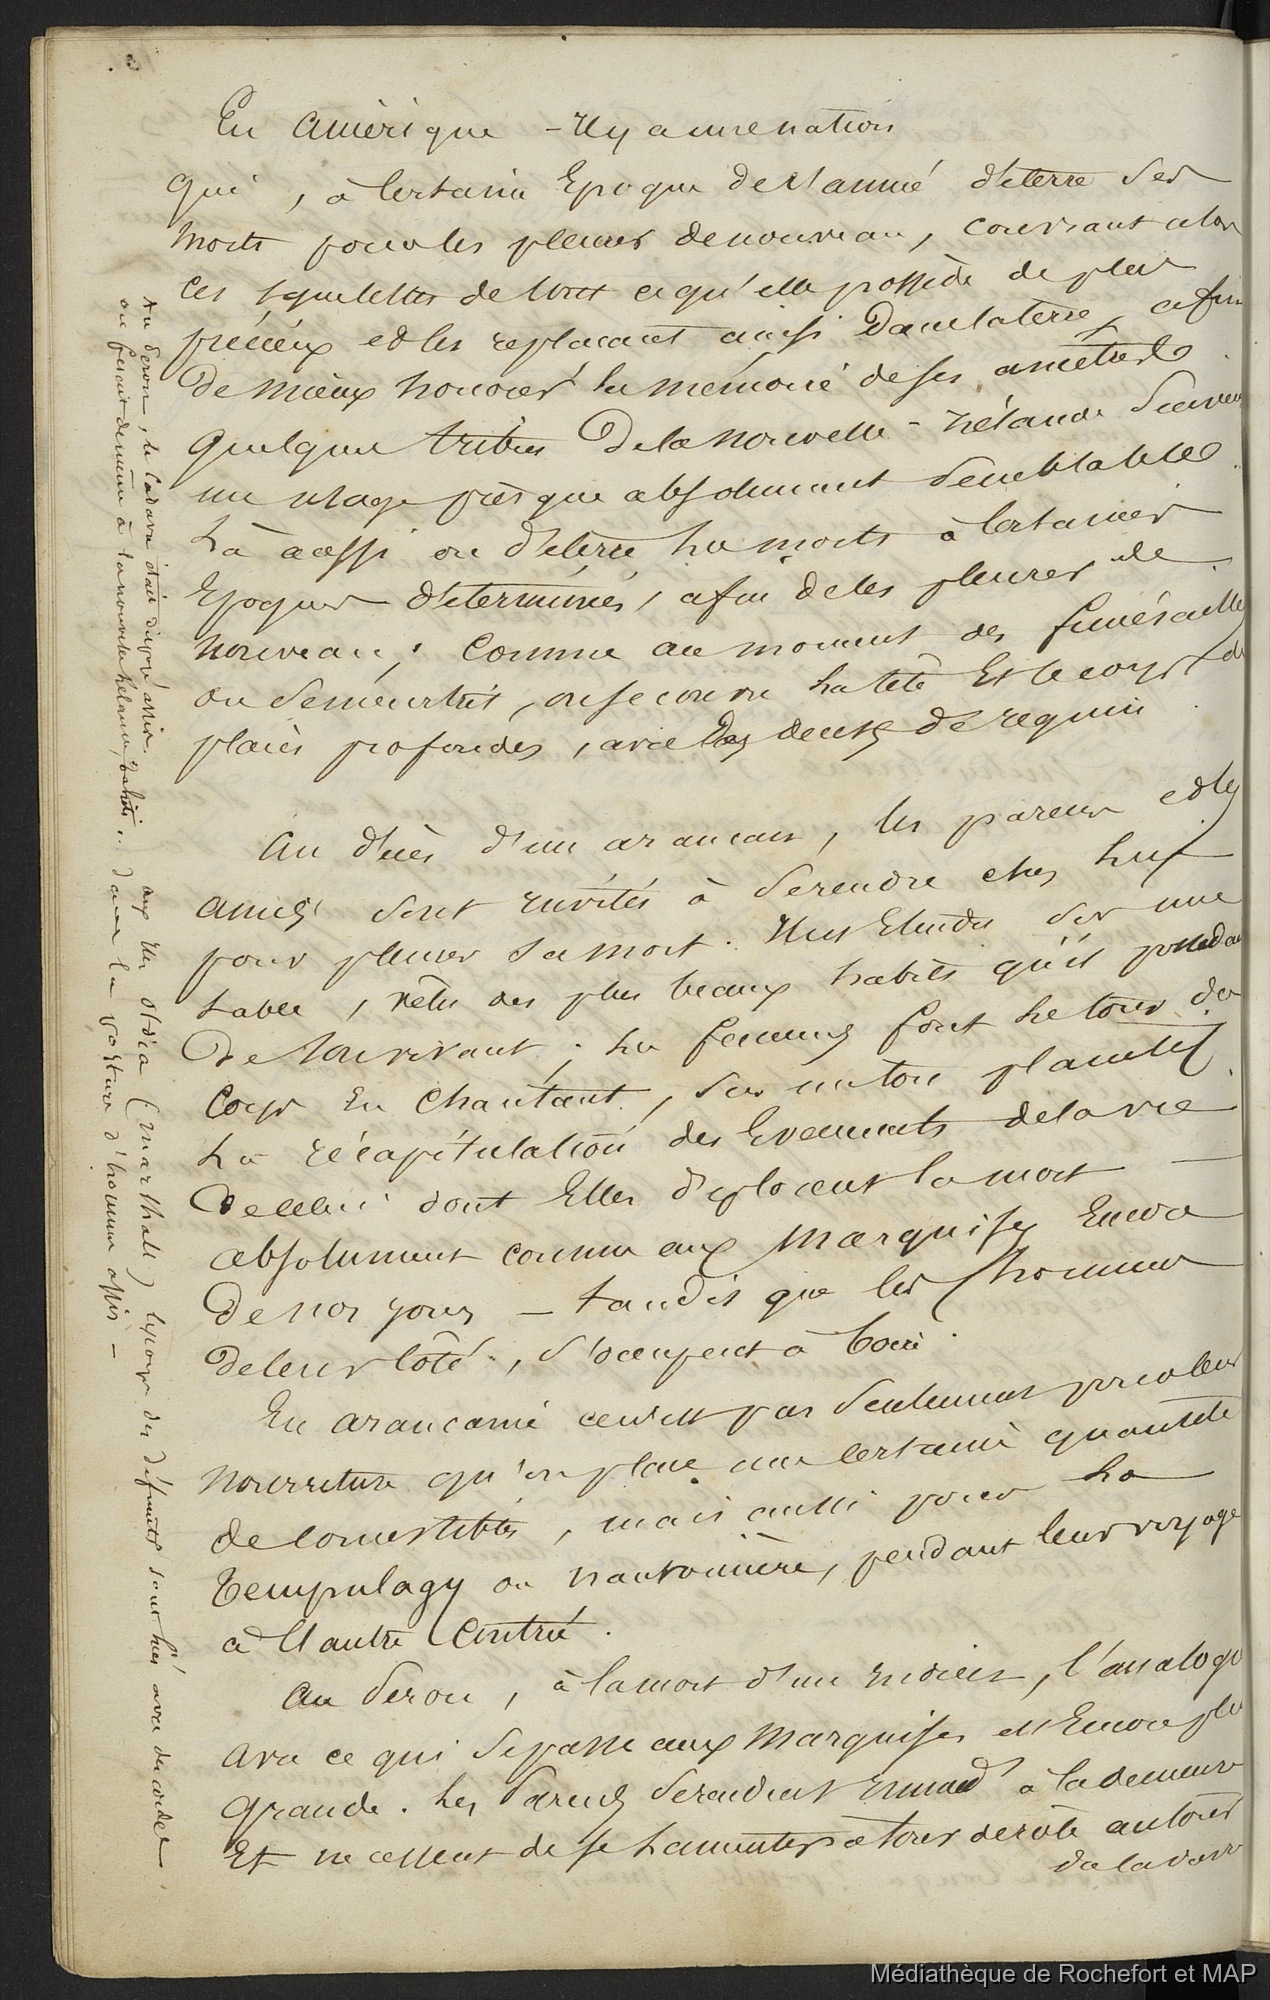 En amérique - Il y a une nation
qui, à certaine Epoque de l'année déterre ses
morts pour les pleurer de nouveau, couvrant alors
ces squelettes de tout ce qu'elle possède de plus
précieux et les replacant ainsi dans la terre, afin
de mieux honorer la mémoire de ses ancêtres
quelques tribus de la nouvelle-zélande suivent
un usage presque absolument semblable
Là aussi on déterre les morts à certaines
Epoques déterminées, afin de les pleurer de
nouveau ; comme au moment des funérailles
on se meurtrit, on se couvre la tête Et le corps de
plaies profondes, avec des dents de requin
Au décès d'un araucan, les parens et les
amis sont invités à se rendre chez lui
pour pleurer sa mort. Il est Etendu sur une
table, vêtu des plus beaux habits qu'il possedait
de son vivant ; les femmes font le tour du
corps En chantant, sur un ton plaintif
La récapitulation des Evenements de la vie
de celui dont Elles déplorent la mort —
absolument comme aux Marquises Encore
de nos jours — tandis que les hommes
de leur côté, s'occupent à boire.
En araucanie ce n'est pas seulement pour leur
nourriture qu'on place une certaine quantité
de comestibles, mais aussi pour la
Tempulagy ou nautonnière, pendant leur voyage
à l'autre contrée.
au Pérou, à la mort d'un indien, l'analogie
avec ce qui se passe aux Marquises est Encore plus
grande. Les Parens se rendent à la demeure
Et ne cessent de se lamenter à tour de rôle autour
du cadavre
Au Perou, le cadavre était dispo assis.
on faisait de même à la nouvelle zélande, tahiti.. dans la posture d'homme assis —
aux Iles (Marshall) les corps des défunts sont liés avec des cordes